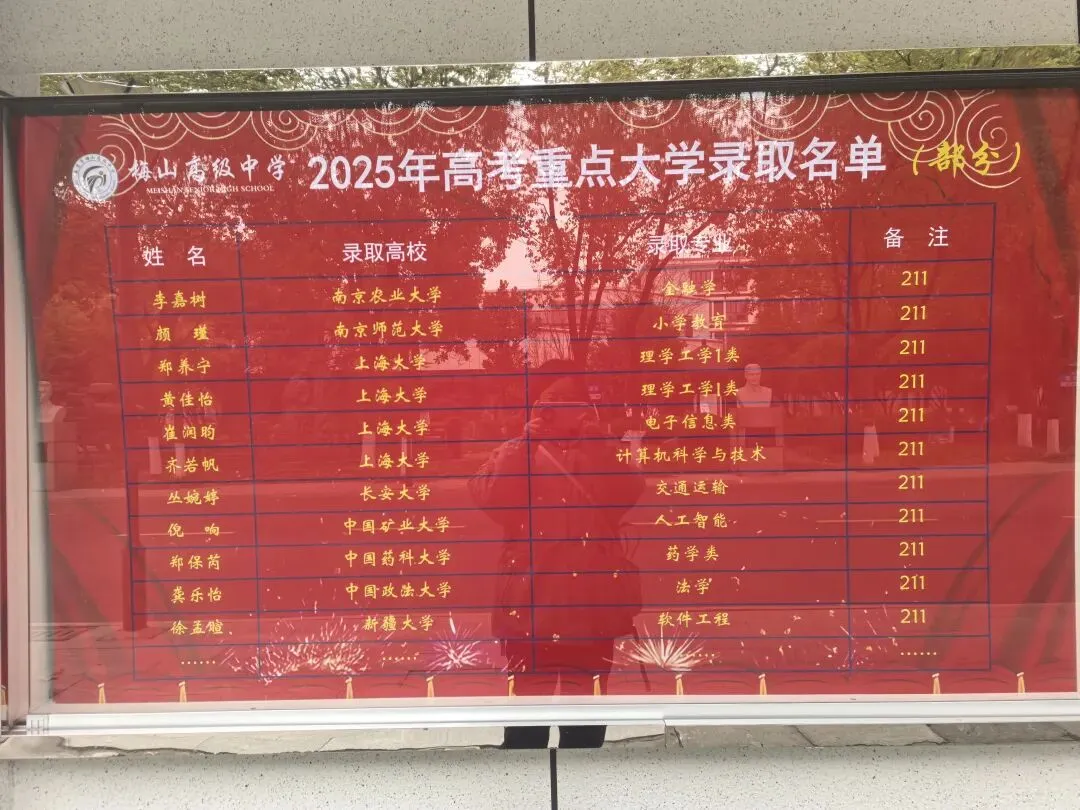 梅山高级中学 2025年高考重点大学录取名单 (部分)
MEISHAN SENIOR HIGH SCHOOL
姓 名 录取高校 录取专业 备 注
李嘉树 南京农业大学 金融学 211
颜 瑾 南京师范大学 小学教育 211
郑养宁 上海大学 理学工学1类 211
黄佳怡 上海大学 理学工学1类 211
崔润昀 上海大学 电子信息类 211
齐若帆 上海大学 计算机科学与技术 211
丛婉婷 长安大学 交通运输 211
倪 响 中国矿业大学 人工智能 211
郑保芮 中国药科大学 药学类 211
龚乐怡 中国政法大学 法学 211
徐孟暄 新疆大学 软件工程 211
...... ...... ...... ......